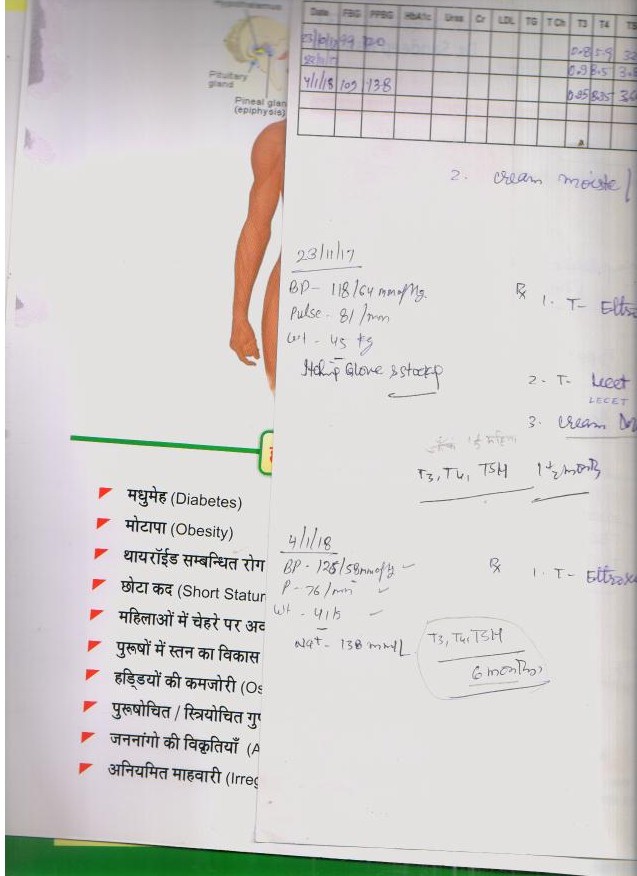 Hypothalamus
Pituitary
gland
Pineal glan
(epiphysis)
Date FBG PPBG HbA1c Urea Cr LDL TG T Ch T3 T4 TS
99 120 0.8 5.9
0.9 8.5
4/1/18 102 138 0.95 8.35
2. cream moiste
23/11/17
BP - 118/64 mmofHg.
Pulse - 81 /min
wt - 45 kg
Itching Glove & stocking
Rx 1. T- Eltro
2. T- Lecet
LECET
3. cream
T3, T4, TSH 1 1/2 month
4/1/18
BP - 128/58 mmofHg
P - 76/min
Wt -
Na+ - 138 mm/L
Rx 1. T- Eltrox
T3, T4, TSH
6 months
मधुमेह (Diabetes)
मोटापा (Obesity)
थायरॉईड सम्बन्धित रोग
छोटा कद (Short Statur
महिलाओं में चेहरे पर अव
पुरूषों में स्तन का विकास
हड्डियों की कमजोरी (Os
पुरूषोचित / स्त्रियोचित गुण
जननांगो की विकृतियाँ (A
अनियमित माहवारी (Irreg